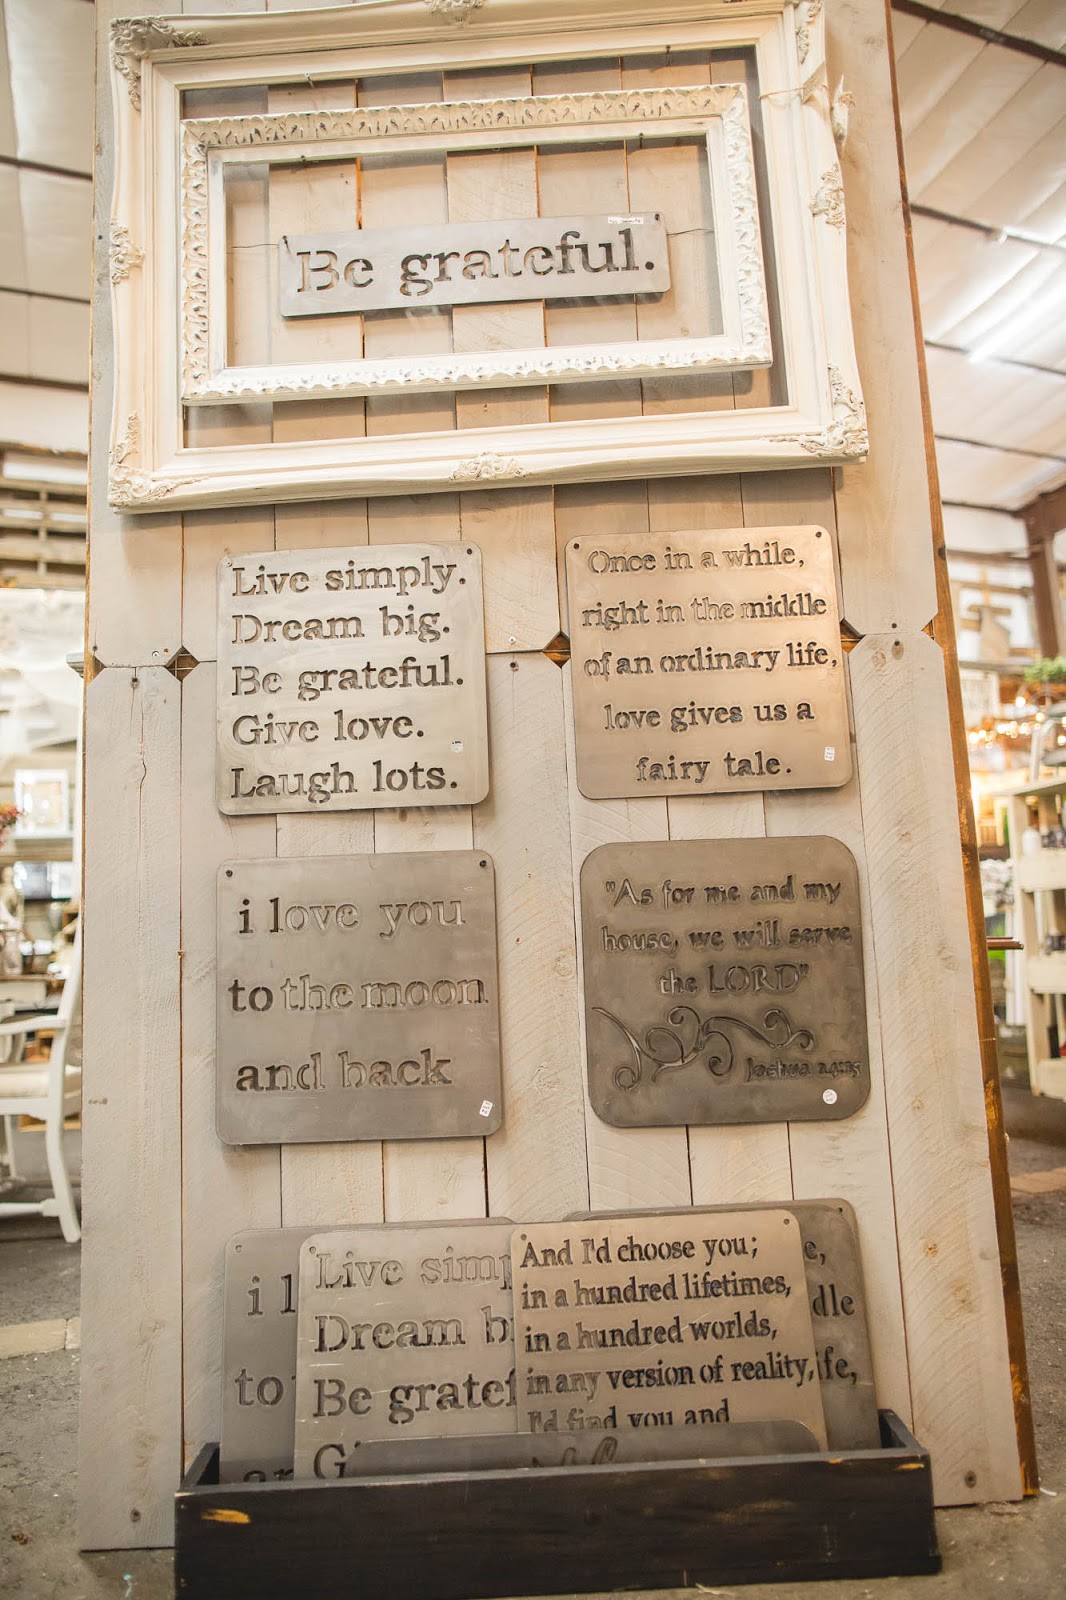 Be grateful.
Live simply.
Dream big.
Be grateful.
Give love.
Laugh lots.
Once in a while,
right in the middle
of an ordinary life,
love gives us a
fairy tale.
i love you
to the moon
and back
"As for me and my
house, we will serve
the LORD"
Joshua 24:15
i l
to
an
Live simp
Dream b
Be gratef
G
And I'd choose you;
in a hundred lifetimes,
in a hundred worlds,
in any version of reality,
I'd find you and
e,
dle
ife,